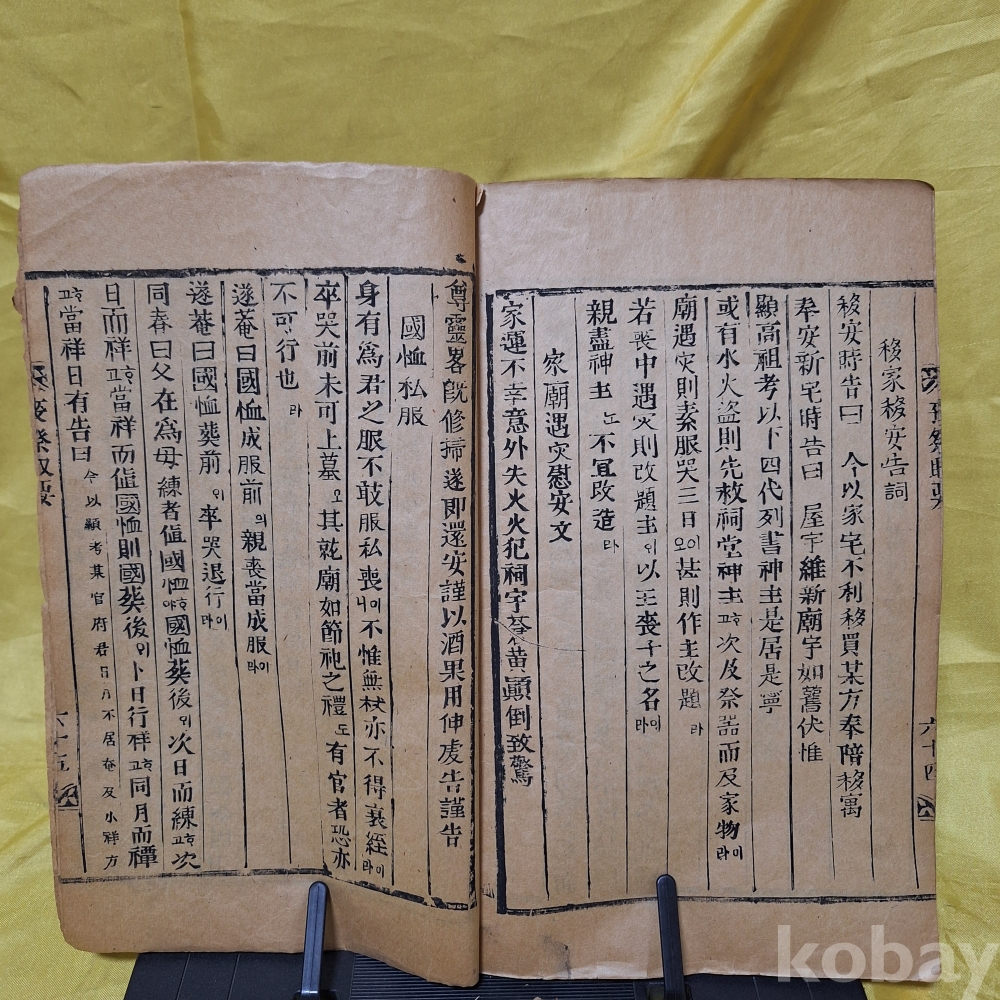 移家移安告詞
移安時告曰 今以家宅不利移買某方奉陪移寓
奉安新宅時告曰 屋宇維新廟宇如舊伏惟
顯高祖考以下四代列書神主是居是寧
或有水火盜則先救祠堂神主고次及祭器而及家物이라
廟遇災則素服哭三日이오甚則作主改題라
若喪中遇災則改題主의以王喪子之名이라
親盡神主는不冝改造라
家廟遇災慰安文
家運不幸意外失火火犯祠宇蒼黃顚倒致驚
六十四
尊靈畧旣修掃遂即還安謹以酒果用伸虔告謹告
國恤私服
身有爲君之服不敢服私喪이니不惟無杖亦不得衰絰이라
卒哭前未可上墓오其就廟如節祀之禮도有官者恐亦
不可行也라
遂菴曰國恤成服前의親喪當成服이라
遂菴曰國恤葬前의卒哭退行이라
同春曰父在爲母練者値國恤야國恤葬後의次日而練고次
日而祥고當祥而値國恤則國葬後의卜日行祥고同月而禫
고當祥日有告曰 今以顯考某官府君日月不居奄及小祥方
喪祭取要
六十五
kobay